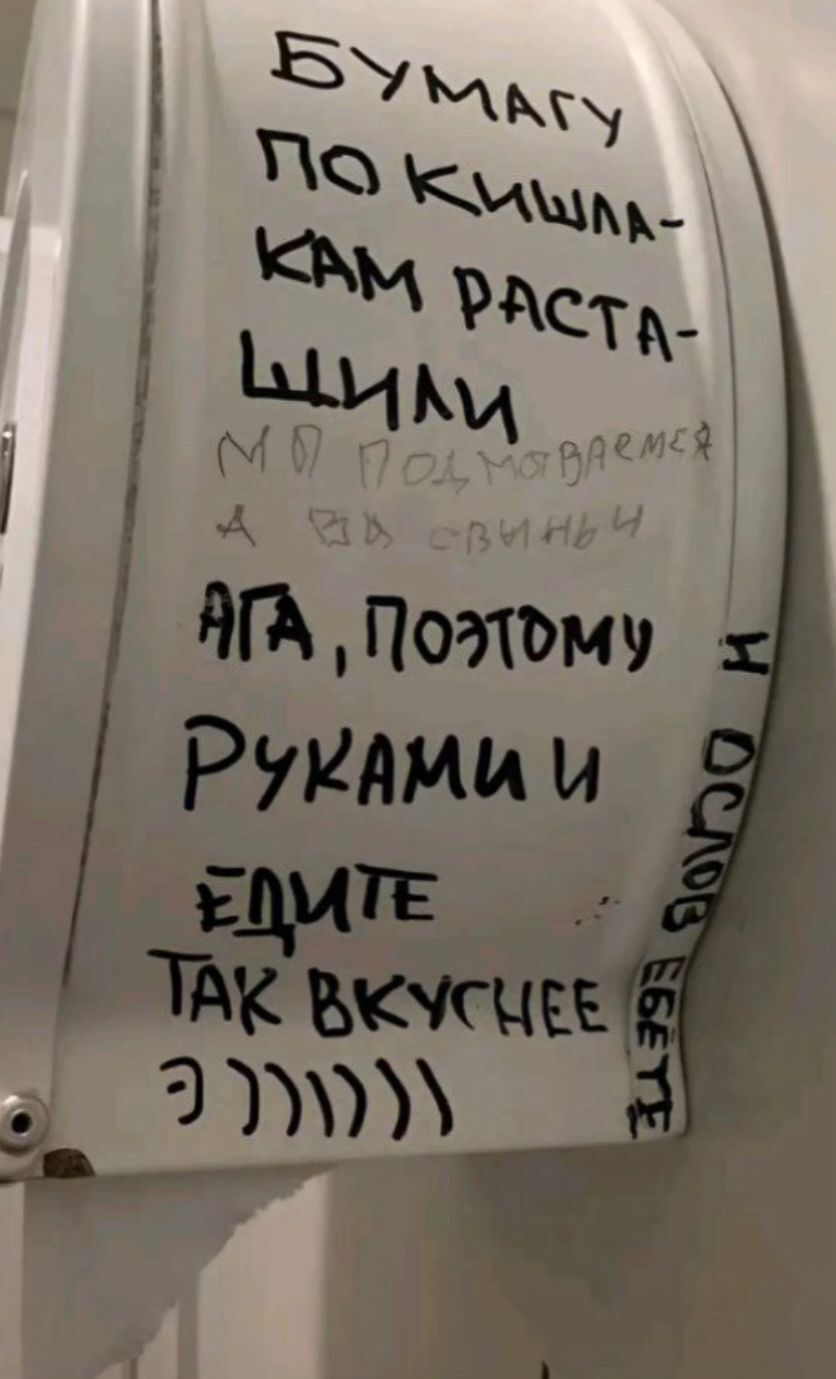 БУМАГУ
ПО КИШЛА-
КАМ РАСТА-
ЩИЛИ
МЫ ПОДМЫВАЕМСЯ
А ВЫ СВЫНЬИ
АГА, ПОЭТОМУ
РУКАМИ И
ЕДИТЕ
ТАК ВКУСНЕЕ
Э)))))))
И ОСЛОВ ЕБЁТЕ